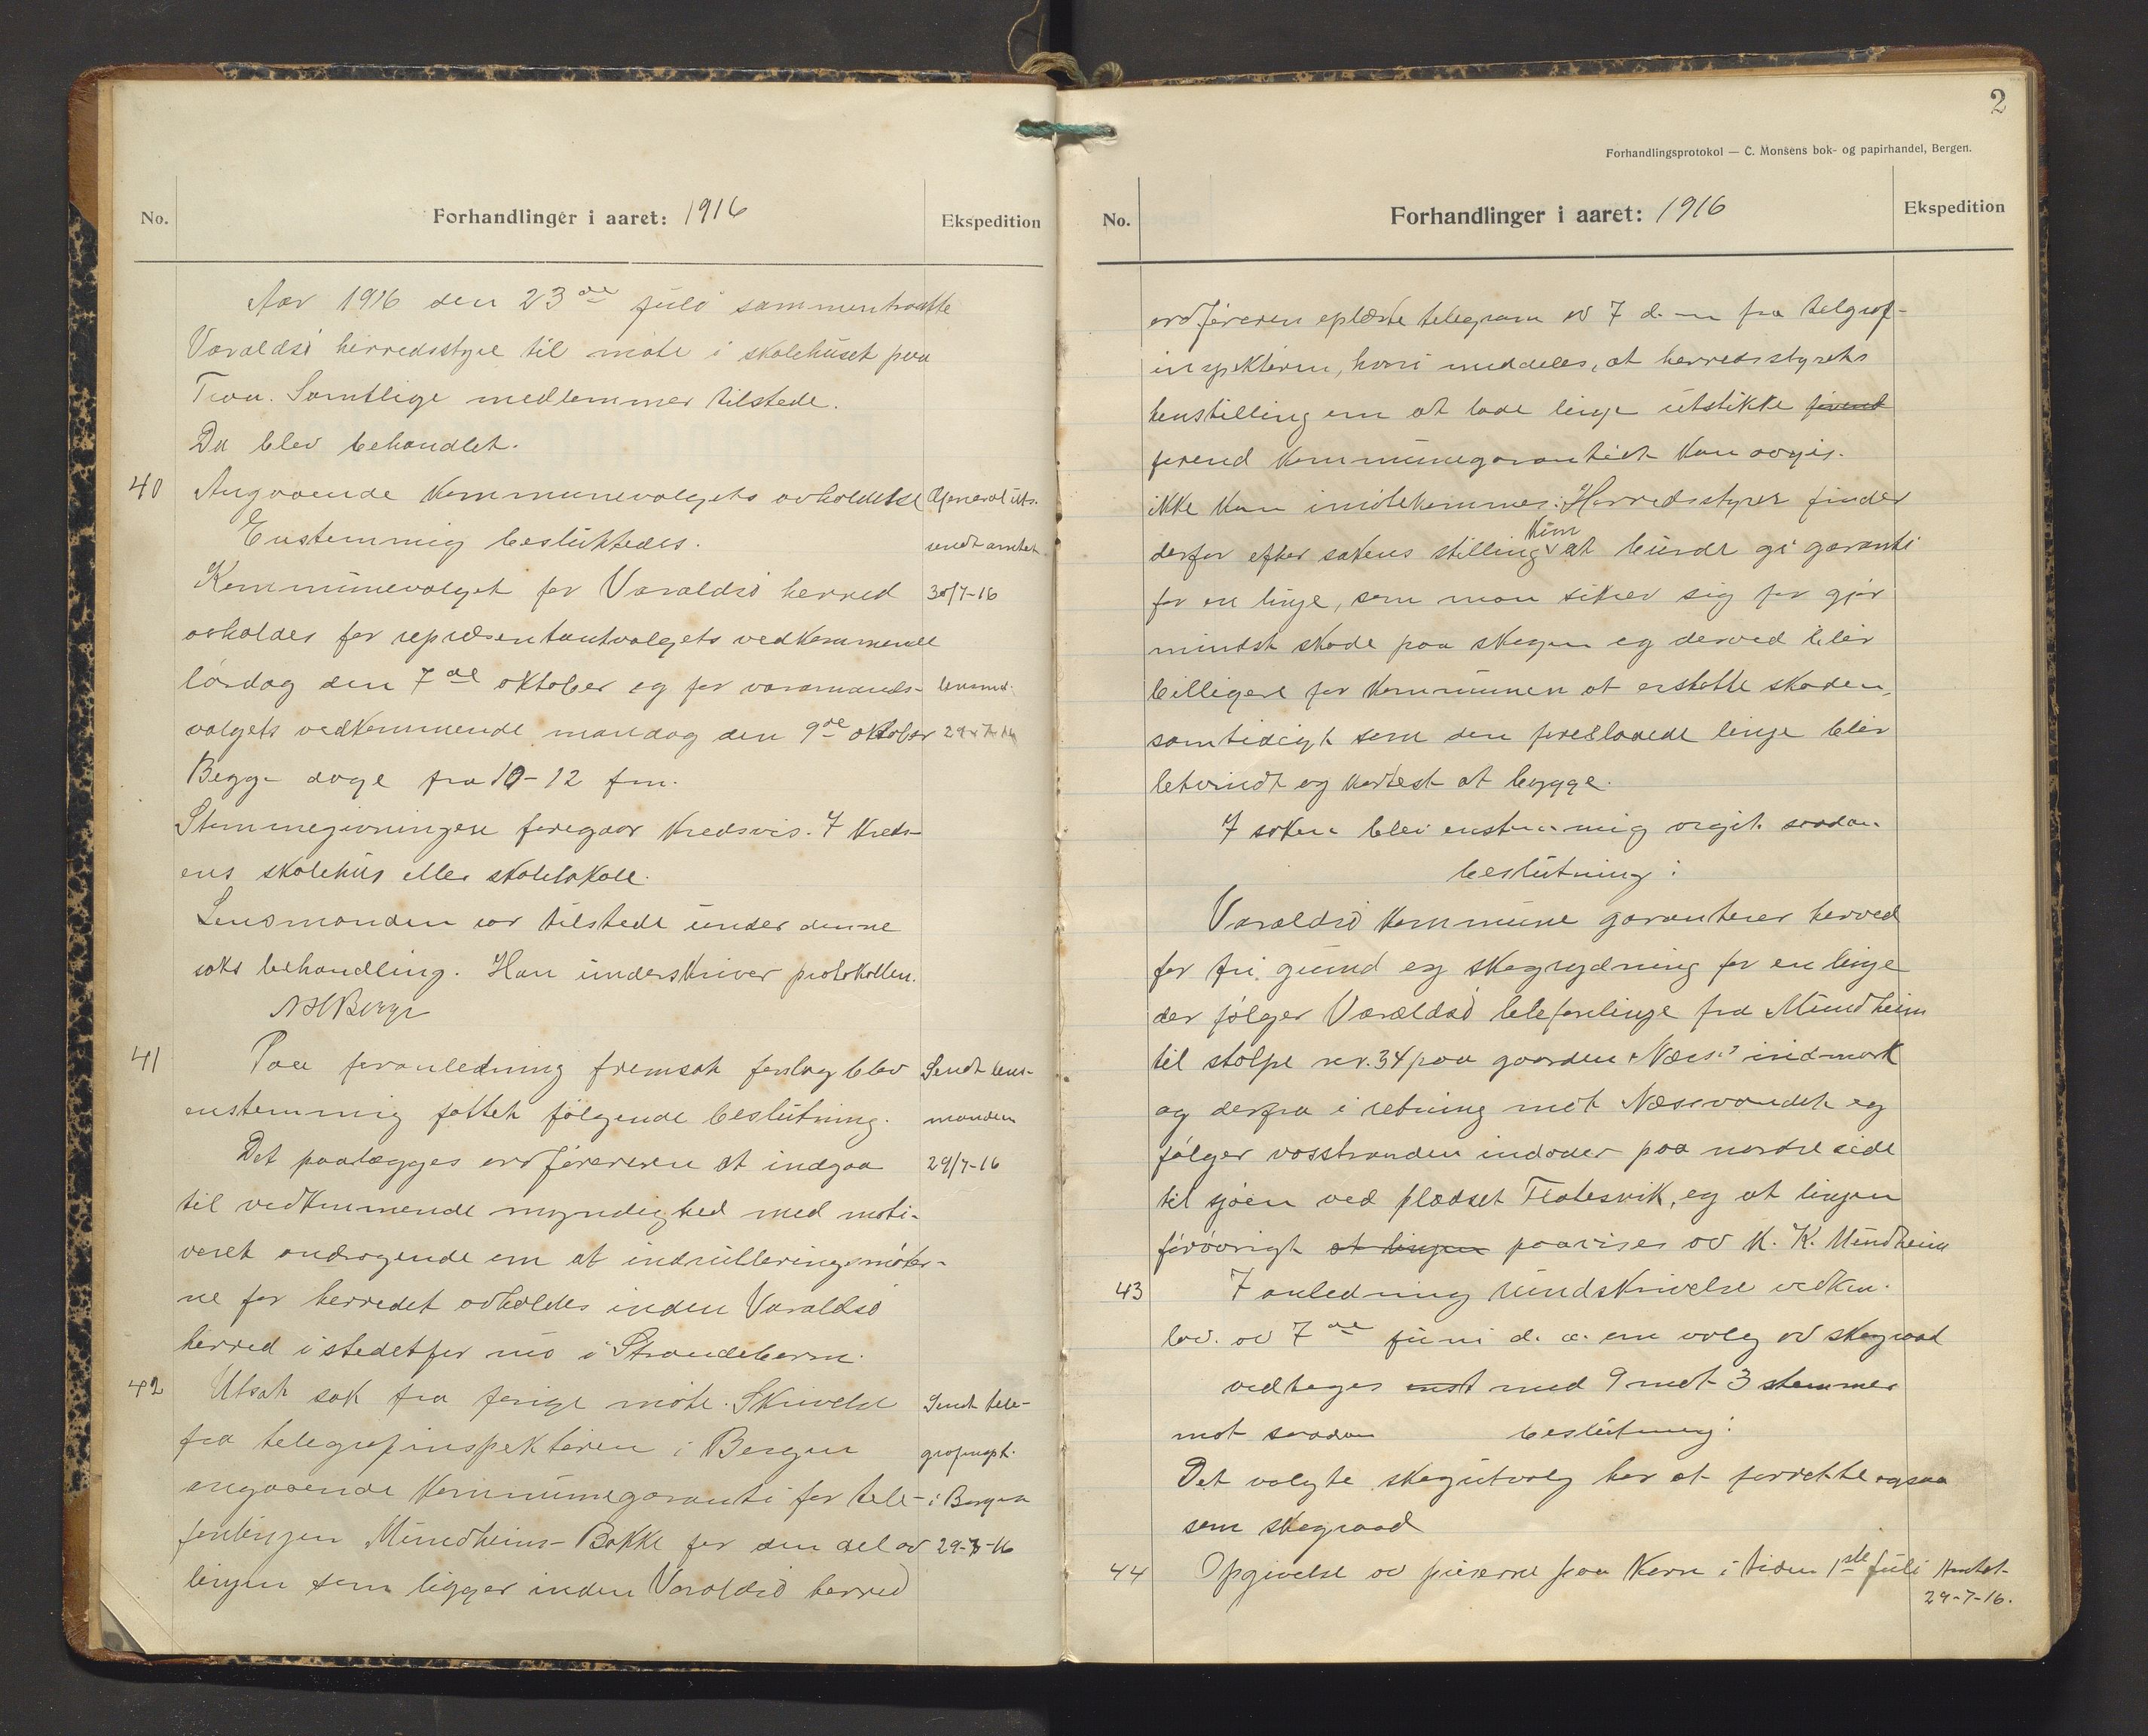 No.
Forhandlinger i aaret: 1916
Ekspedition
Aar 1916 den 23de juli sammentraatte
Varaldsö herredsstyre til möte i skolehuset paa
Traa. Samtlige medlemmer tilstede.
Da blev behandlet.
40 Angaaende kommunevalgets avholdelse
Enstemmig besluttedes.
Kommunevalget for Varaldsö herred
avholdes for repræsentantvalgets vedkommende
lördag den 7de oktober og for varamands-
valgets vedkommende mandag den 9de oktober
Begge dage fra 10-12 fm.
Stemmegivningen foregaar kredsvis. I kreds-
ens skolehus eller skolelokale.
Lensmanden var tilstede under denne
saks behandling. Han underskriver protokollen.
Berge
sendt amtet
30/7-16
lensmd.
29-7-16
41 Paa foranledning fremsat forslag blev
enstemmig fattet fölgende beslutning.
Det paalægges ordföreren at indgaa
til vedkommende myndighed med moti-
veret andragende om at indrulleringsmöter-
ne for herredet avholdes inden Varaldsö
herred istedetfor nu i Strandebarm.
Sendt lens-
manden
29/7-16
42 Utsat sak fra forige möte. Skrivelse
fra telegrafinspektören i Bergen
angaaende kommunegaranti for tele-
fonlinjen Mundheim-Bakke for den del av
linjen som ligger inden Varaldsö herred
Sendt tele-
grafinspt.
i Bergen
29-7-16
2
Forhandlingsprotokol — C. Monsens bok- og papirhandel, Bergen.
No.
Forhandlinger i aaret: 1916
Ekspedition
ordföreren oplæste telegram av 7 d. m fra telgraf-
inspektören, hvori meddeles, at herredsstyrets
henstilling om at lade linje utstikke forend
forend kommunegarantien kan avgis.
ikke kan imötekommes. Herredsstyret finder
derfor efter sakens stilling kun at burde gi garanti
for en linje, som man sikrer sig for gjör
mindst skade paa skogen og derved blir
billigere for kommunen at erstatte skaden,
samtidigt som den foreslaaede linje blir
letvindt og kortest at bygge.
I saken blev enstemmig avgit saadan
beslutning:
Varaldsö kommune garanterer herved
for fri grund og skogrydning for en linje
der fölger Varaldsö telefonlinje fra Mundheim
til stolpe nr. 34 paa gaarden "Næs" indmark
og derfra i retning mot Næsevandet og
fölger vasstranden indover paa nordre side
til sjöen ved pladset Flatesvik, og at linjen
forövrigt at linjen paavises av K. K. Mundheim
43 I anledning rundskrivelse vedkm.
lov. av 7de juni d. a. om valg av skograad
vedtoges enst med 9 mot 3 stemmer
mot saadan beslutning:
Det valgte skogutvalg har at forrette ogsaa
som skograad
44 Opgivelse av priserne paa korn i tiden 1ste juli
Amtet
29-7-16.